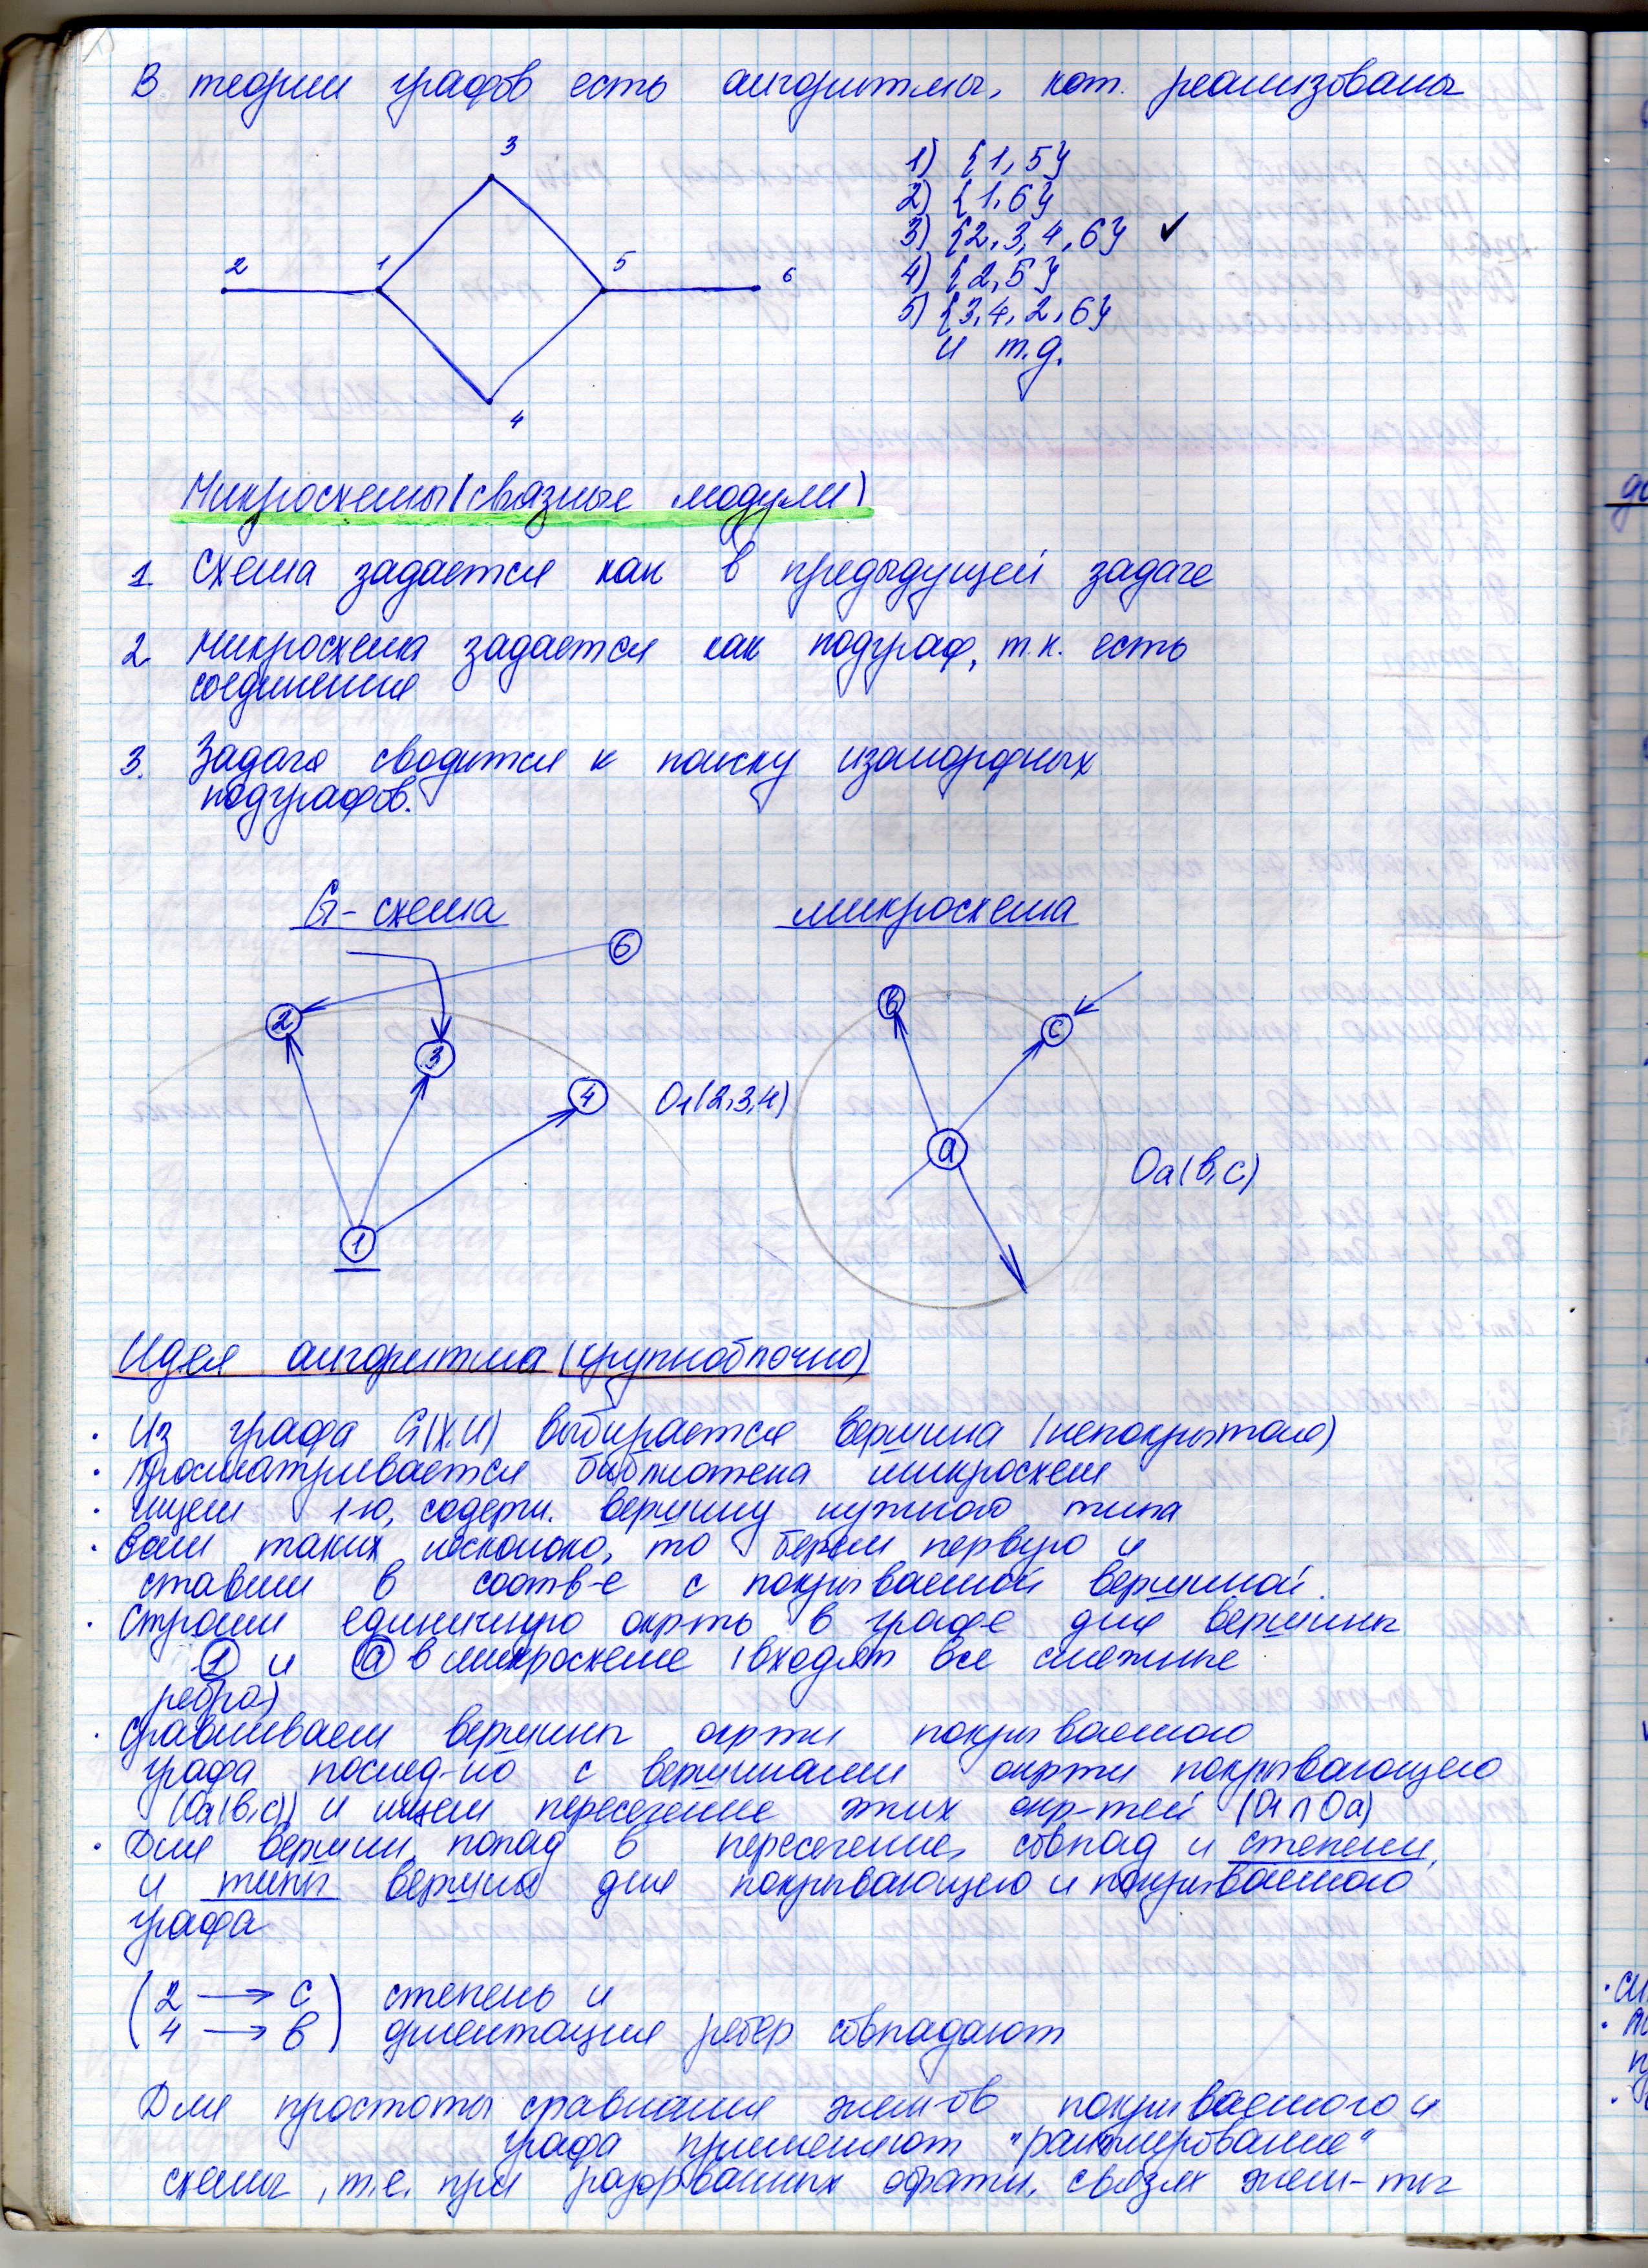 В теории графов есть алгоритмы, кот. реализованы
3
2
1
5
6
4
1) {1,5}
2) {1,6}
3) {2,3,4,6} ✓
4) {2,5}
5) {3,4,2,6}
и т.д.
Микросхемы (связные модули)
1. Схема задается как в предыдущей задаче
2. Микросхема задается как подграф, т.к. есть
соединения
3. Задача сводится к поиску изоморфных
подграфов.
G-схема
микросхема
6
2
3
4
1
O1(2,3,4)
в
с
а
Oa(в,с)
Идея алгоритма (крупноблочно)
· Из графа G(X,U) выбирается вершина (непокрытая)
· Просматривается библиотека микросхем
· Ищем 1-ю, содерж. вершину нужного типа
· Если таких несколько, то берем первую и
ставим в соотв-е с покрываемой вершиной.
· Строим единичную окр-ть в графе для вершины
1 и а в микросхеме (входят все смежные
ребра)
· Сравниваем вершины окр-ти покрываемого
графа послед-но с вершинами окр-ти покрывающего
(Oa(в,с)) и ищем пересечение этих окр-тей (O1∩Oa)
· Для вершин, попад в пересечение, совпад и степени,
и типы вершин для покрывающего и покрываемого
графа
(2 → с) степень и
(4 → в) ориентация ребер совпадают
Для простоты сравнения элем-ов покрываемого и
графа применяют "ранжирование"
схемы, т.е. при разорванных обратн. связях элем-ты